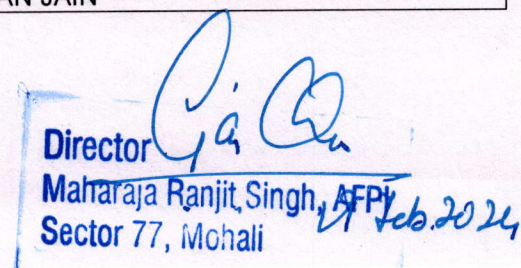 AN JAIN
Director
Maharaja Ranjit Singh, AFPI
Sector 77, Mohali
Feb. 2024